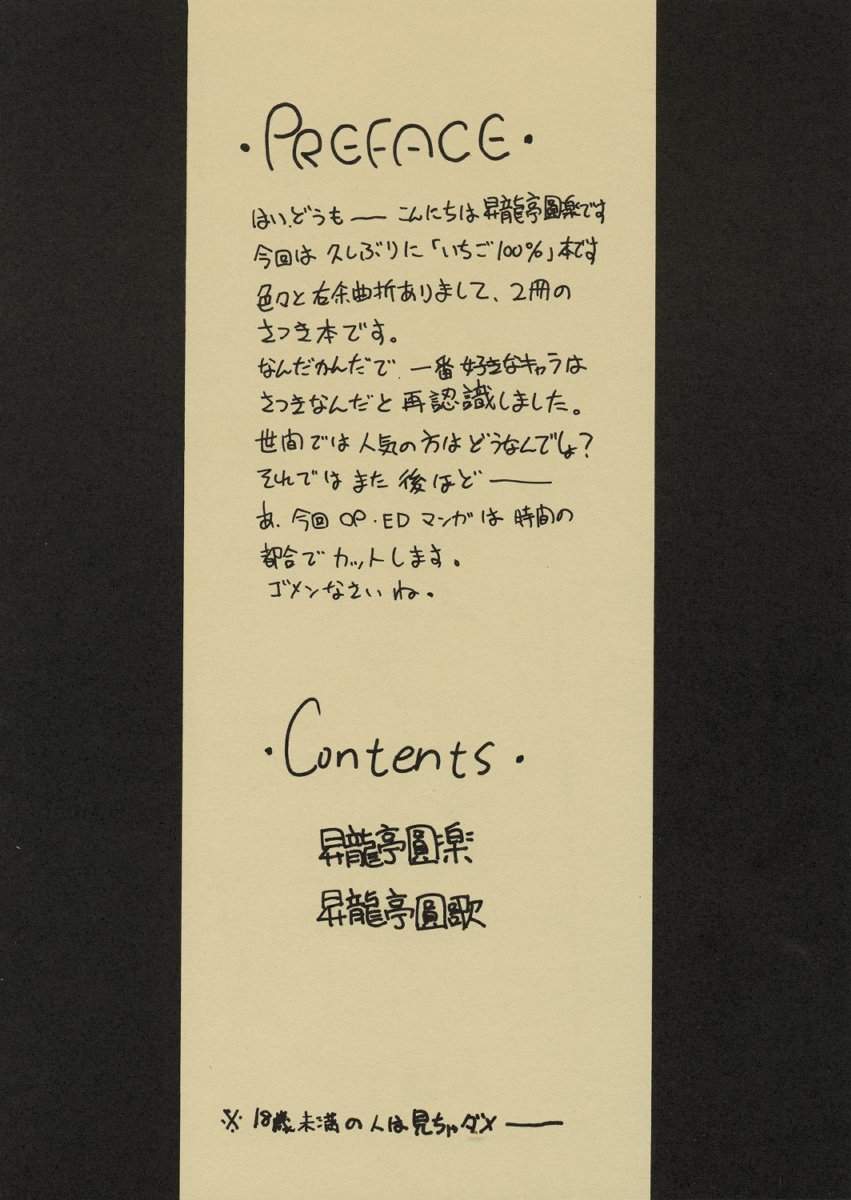 ・PREFACE・
はい、どうも── こんにちは昇龍亭圓楽です
今回は久しぶりに「いちご100%」本です
色々と右余曲折ありまして、2冊の
さつき本です。
なんだかんだで、一番好きなキャラは
さつきなんだと再認識しました。
世間では人気の方はどうなんでしょ?
それではまた後ほど──
あ、今回OP・EDマンガは時間の
都合でカットします。
ゴメンなさいね。
・Contents・
昇龍亭圓楽
昇龍亭圓歌
※18歳未満の人は見ちゃダメ──